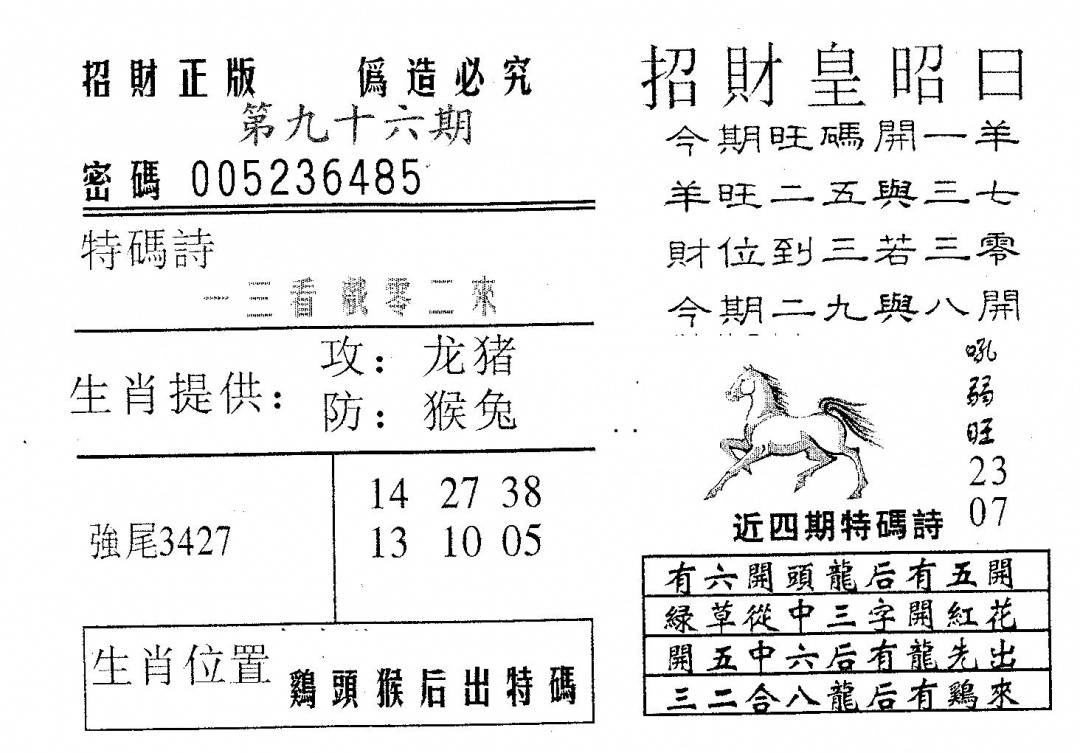 招財正版 僞造必究
第九十六期
密碼 005236485
特碼詩
一三看戲零二來
生肖提供：
攻：龙猪
防：猴兔
強尾3427
14 27 38
13 10 05
生肖位置 鷄頭猴后出特碼
招財皇昭曰
今期旺碼開一羊
羊旺二五與三七
財位到三若三零
今期二九與八開
吼
弱
旺
23
07
近四期特碼詩
有六開頭龍后有五開
緑草從中三字開紅花
開五中六后有龍先出
三二合八龍后有鷄來